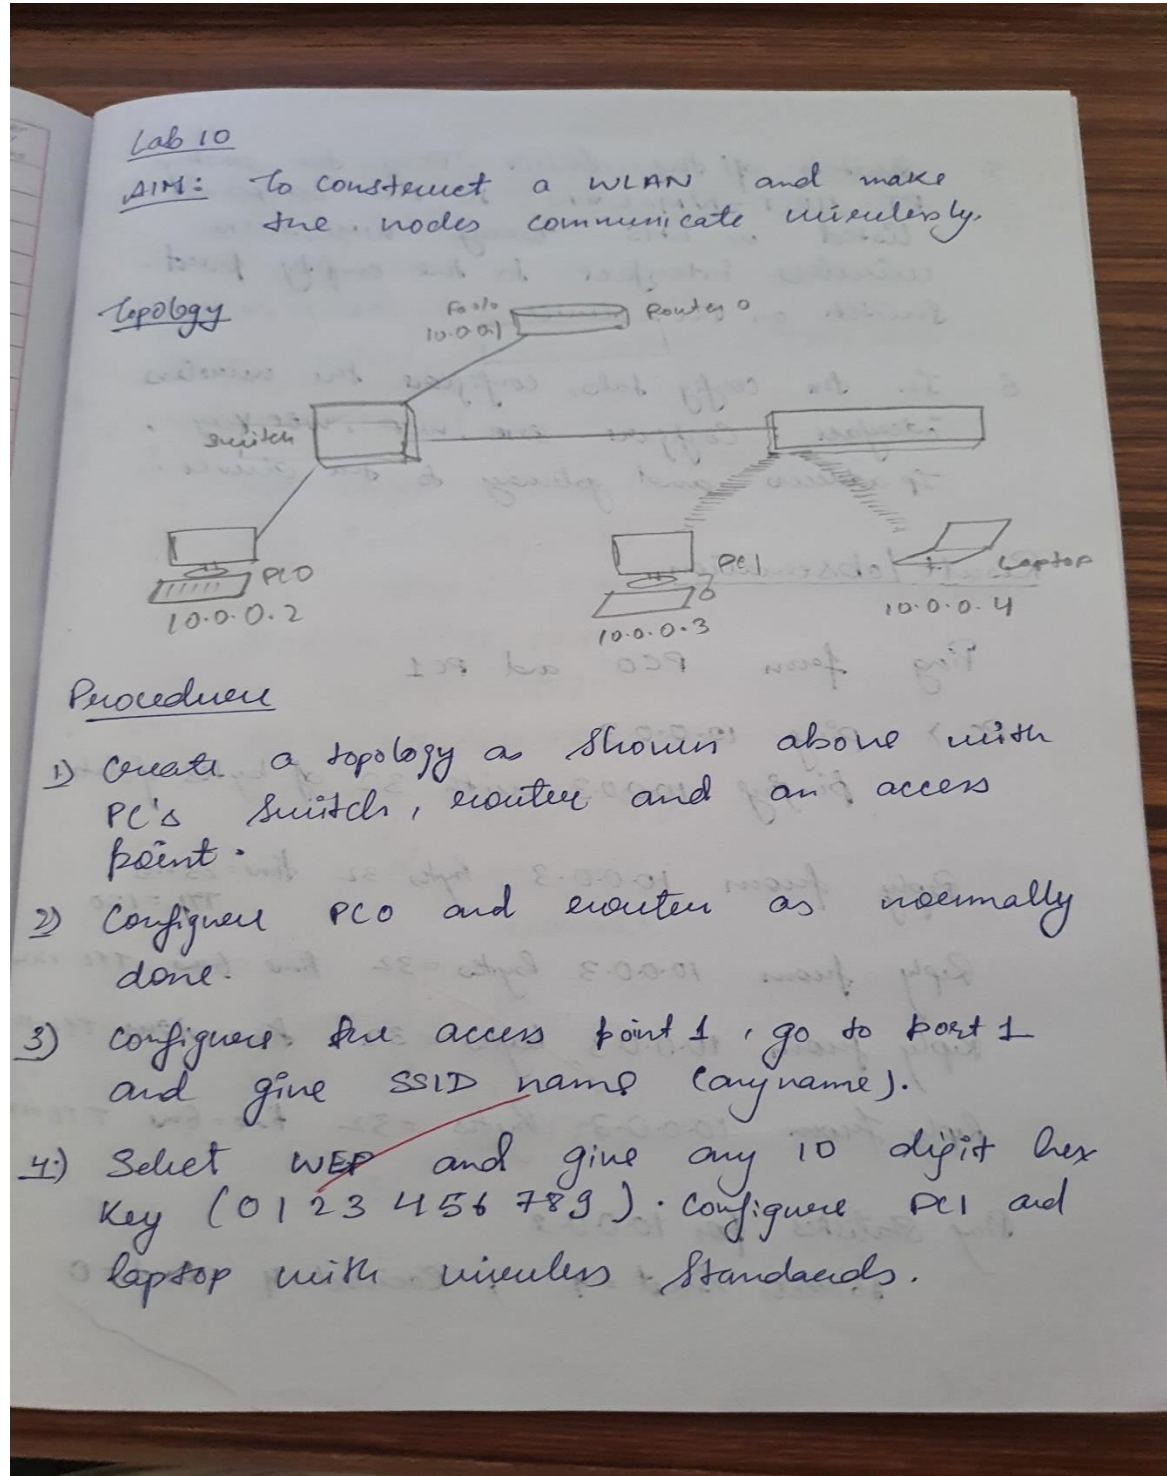 Lab 10
AIM: To construct a WLAN and make
the nodes communicate wirelessly.
Topology
Fa0/0
10.0.0.1
Router 0
Switch
PC0
10.0.0.2
PC1
10.0.0.3
Laptop
10.0.0.4
Procedure
1) Create a topology as shown above with
PC's switch, router and an access
point.
2) Configure PC0 and router as normally
done.
3) Configure the access point 1, go to port 1
and give SSID name (any name).
4) Select WEP and give any 10 digit hex
key (0123456789). Configure PC1 and
laptop with wireless standards.